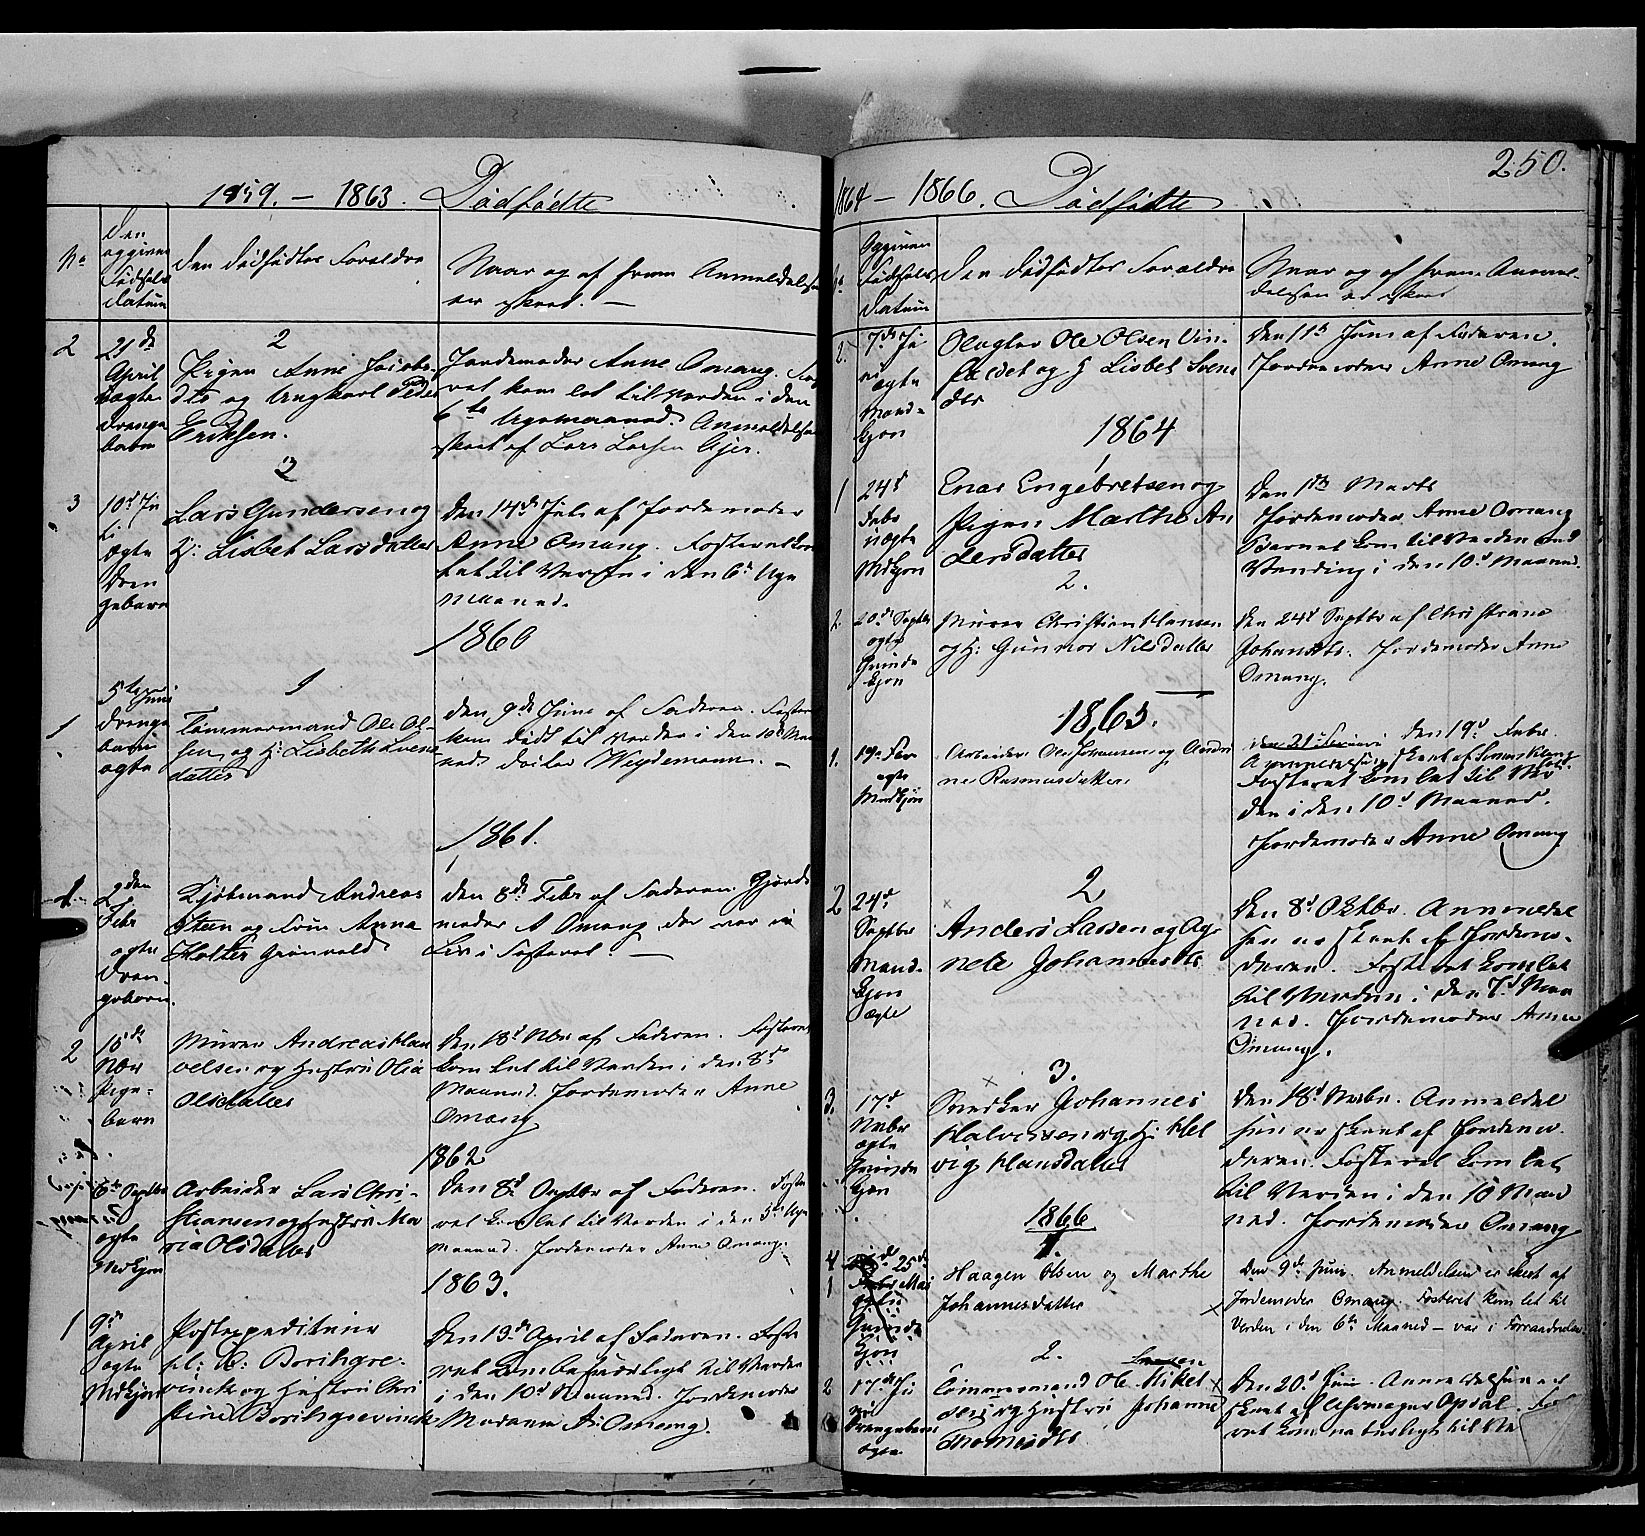 1859. – 1863. Dødfødte
No
Den
opgivne
Fødsels
datum
Den dødfødtes Forældre
Naar og af hvem Anmeldelsen
er skeet. –
2
21de
April
uægte
Drenge
barn
2
Pigen Anne Jacobs
dtr og Ungkarl Peder
Eriksen.
Jordemoder Anne Omang. Fost
ret kom let til Verden i den
6te Ugemaaned. Anmeldelsen
skeet af Lars Larsen
3
10d Ju
li
ægte
Dren
gebarn
3
Lars Gundersen og
H: Lisbet Larsdatter
Den 14de Juli af Jordemoder
Anne Omang. Fosteret kom
let til Verden i den 6te Uge
Maaned.
1860
1
5te Juni
Drenge
barn
ægte
1
Tømmermand Ole Ol
sen og H: Lisbeth Svens
datter
Den 9de Juni af Faderen. Foster
kom dødt til Verden i den 10d Maa
ned. Doctor Weydemann. –
1861.
1
2den
Febr
ægte
Dren
gebarn.
1
Kjøbmand Andreas
Steen og Frue Anna
Holter Grønvold
Den 8de Febr af Faderen. Gjorde
moder A Omang der var ei
Liv i Fosteret. –
2
15de
Nov
Pige
barn
Murer Andreas Hau
velsen og Hustru Olia
Olsdatter
Den 18d Nov af Faderen. Fosteret
kom let til Verden i den 8d
Maaned. Jordemoder Anne
Omang
1862
6te Septbr
ægte
Mdkjøn
Arbeider Lars Chri-
stiansen og Hustru Ma
ria Olsdatter
Den 8d Septbr af Faderen. Foste
ret kom let til Verden i den 5te Uge
Maaned. Jordemoder Anne Omang.
1863.
1
9de
April
ægte
Mdkjøn
Postexpediteur
Borchgre-
vinck og Hustru Chri
stine Borchgrevinck
Den 13de April af Faderen. Foste
ret kom besværligt til Verden
i den 10d Maaned. Jordemoder
Madame A: Omang.
250.
1864 – 1866. Dødfødte
No
Opgivne
Fødsels
Datum
Den dødfødtes Forældre
Naar og af hvem Anmel-
delsen er skeet
2.
7de Ju
ni
ægte
Mand-
kjøn
Ole Olsen Vin
og H Lisbet Svens
dtr
Den 11te Juni af Faderen.
Jordemoder Anne Omang
1864
1
24d
Febr
uægte
Mdkjøn
1
Enar Engebretsen og
Pigen Marthe An
dersdatter
Den 1ste Marts
Jordemoder Anne Omang
Barnet kom til Verden ved
Vending i den 10d Maaned.
2.
20d Septbr
ægte
Qvinde
kjøn
2.
Murer Christian Hansen
og H: Gunnor Nilsdatter
Den 24d Septbr af Christiane
Johansdtr. Jordemoder Anne
Omang.
1865.
1.
19de Febr
ægte
Mandkjøn
Arbeider Ole Johannesen og
ne Rasmusdatter
den 21 Februar den 19d Febr.
Anmeldelsen skeet af
Fosteret kom let til Ver
den i den 10d Maaned.
Jordemoder Anne Omang
2
24d
Septbr
Mand-
kjøn
ægte
2
Anders Larsen og Ag
nete Johannesdtr
Den 8d Oktbr. Anmeldel
sen er skeet af Jordemo-
deren. Fosteret kom let
til Verden i den 7d Maa
ned. Jordemoder Anne
Omang.
3.
17d
Novbr
ægte
Qvinde
kjøn
3.
Snedker Johannes
Halvorsen og H: Hel
vig Hansdatter
Den 18d Novbr. Anmeldel
sen er skeet af Jordemo
deren. Fosteret kom let
til Verden i den 10 Maa
ned. Jordemoder Omang
1866
1
1
25de
Mai
ægte
Qvinde
kjøn
Haagen Olsen og Marthe
Johannesdatter
Den 9de Juni. Anmeldelsen er skeet af
Jordemoder Omang. Fosteret kom let til
Verden i den 6te Maaned – var i Forraadnelse
2
17de Ju
ni
Drengebarn
ægte
2.
Larsen
Tømmermand Ole Mikel
sen og Hustru Johanne
Thomesdtr
Den 20d Juni Anmeldelsen er
skeet af Opdal. Fost
ret kom naturligt til Ve